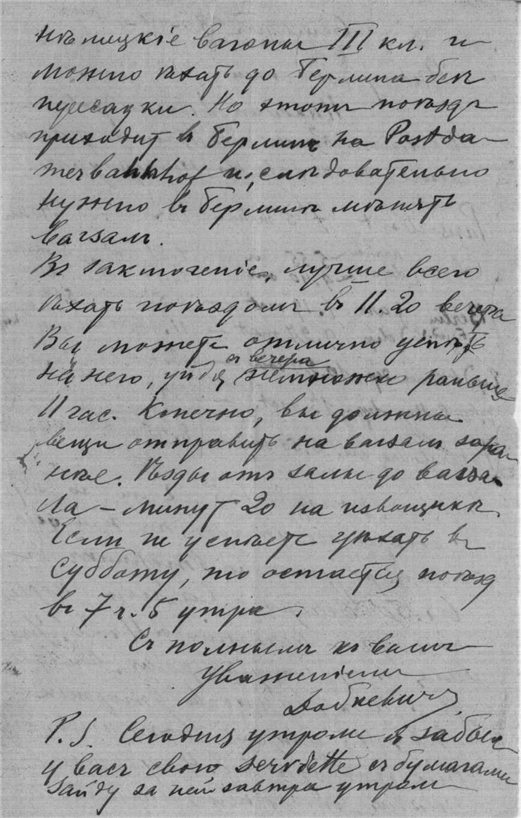 нѣмецкіе вагоны III кл. и
можно ѣхать до Берлина без
пересадки. Но этотъ поѣздъ
приходит в Берлинъ на Potsda-
merbahnhof и, слѣдовательно
нужно въ Берлинѣ мѣнять
вагзал.
Въ заключеніе, лучше всего
ѣхать поѣздомъ въ 11.20 вечера
Вы можете отлично успѣть
на него, уйдя съ вечера немножко раньше
11 час. Конечно, вы должны
вещи отправить на вагзалъ зара-
нѣе. Ѣзды отъ залы до вагза-
ла – минут 20 на извощикѣ.
Если не успѣете уѣхать въ
Субботу, то остается поѣзд
въ 7 ч. 5 утра.
Съ полнымъ къ вамъ
уваженіемъ
Добкевичъ
P.S. Сегодня утромъ я забылъ
у васъ свою serviette съ бумагами
зайду за ней завтра утромъ